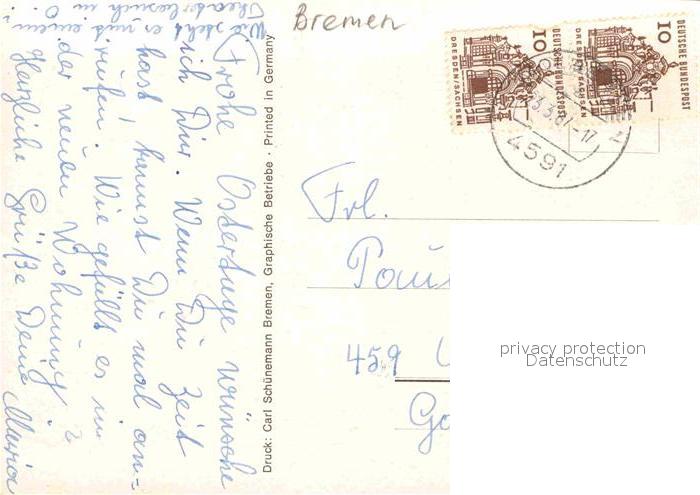 Bremen
Frohe Ostertage wünsche
ich Dir. Wenn Du Zeit
hast, kannst Du mal an-
rufen. Wie gefällt es in
der neuen Wohnung?
Herzliche Grüße Deine Maria
Wie steht es mit einem
Theaterbesuch in O.?
Druck: Carl Schünemann Bremen, Graphische Betriebe · Printed in Germany
10
DEUTSCHE BUNDESPOST
DRESDEN/SACHSEN
10
DEUTSCHE BUNDESPOST
DRESDEN/SACHSEN
4591
Frl.
459
privacy protection
Datenschutz